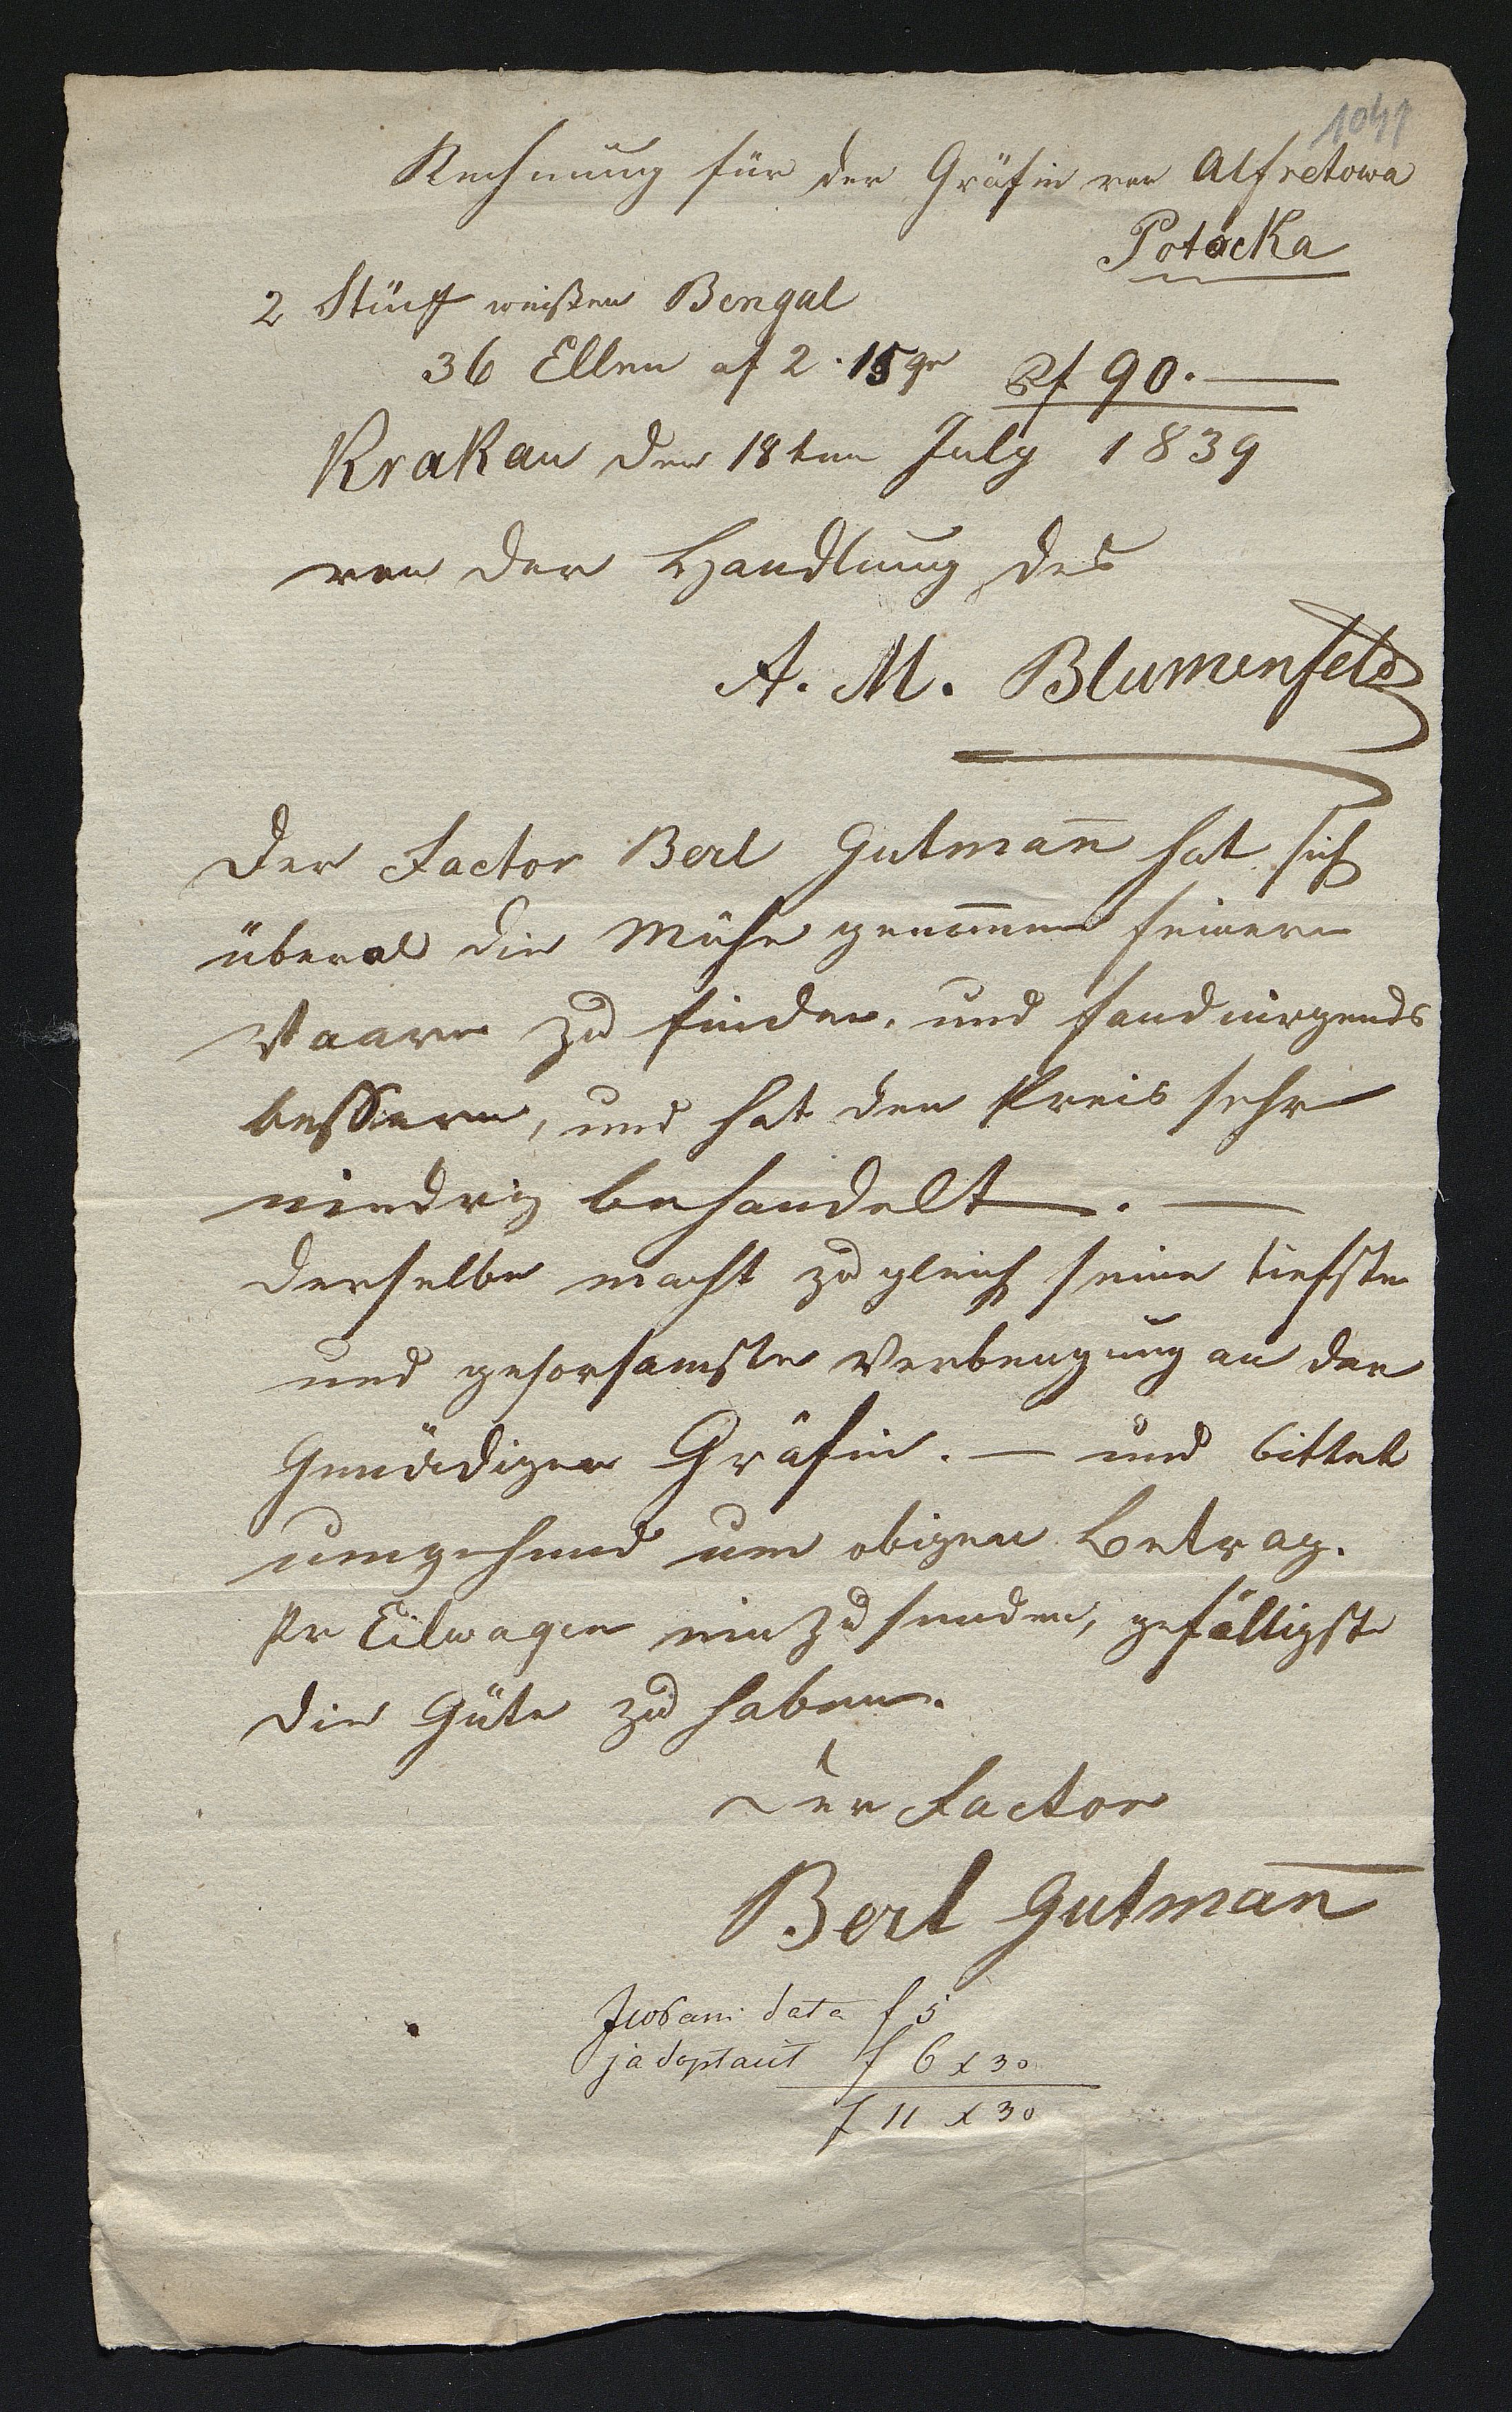 1041
Rechnung für der Gräfin von Alfretowa
Potocka
2 Stück weißen Bengal
36 Ellen af 2. 15 gr f 90.—
Krakau den 18ten July 1839
von der Handlung des
A. M. Blumenfeld
Der Factor Berl Gutmañ hat sich
überal die Mühe genom̄en feinere
Waare zu finden, und fand nirgends
bessern, und hat den Preis sehr
niedrig behandelt. —
Derselbe macht zugleich seine tiefste
und gehorsamste Verbeugung an der
Gnädigen Gräfin. — und bittet
umgehend um obigen Betrag.
Pr Eilwagen einzusenden, gefälligste
die Güte zu haben.
Der Factor
Berl Gutmañ
data f 5
ja f 6 x 30
f 11 x 30